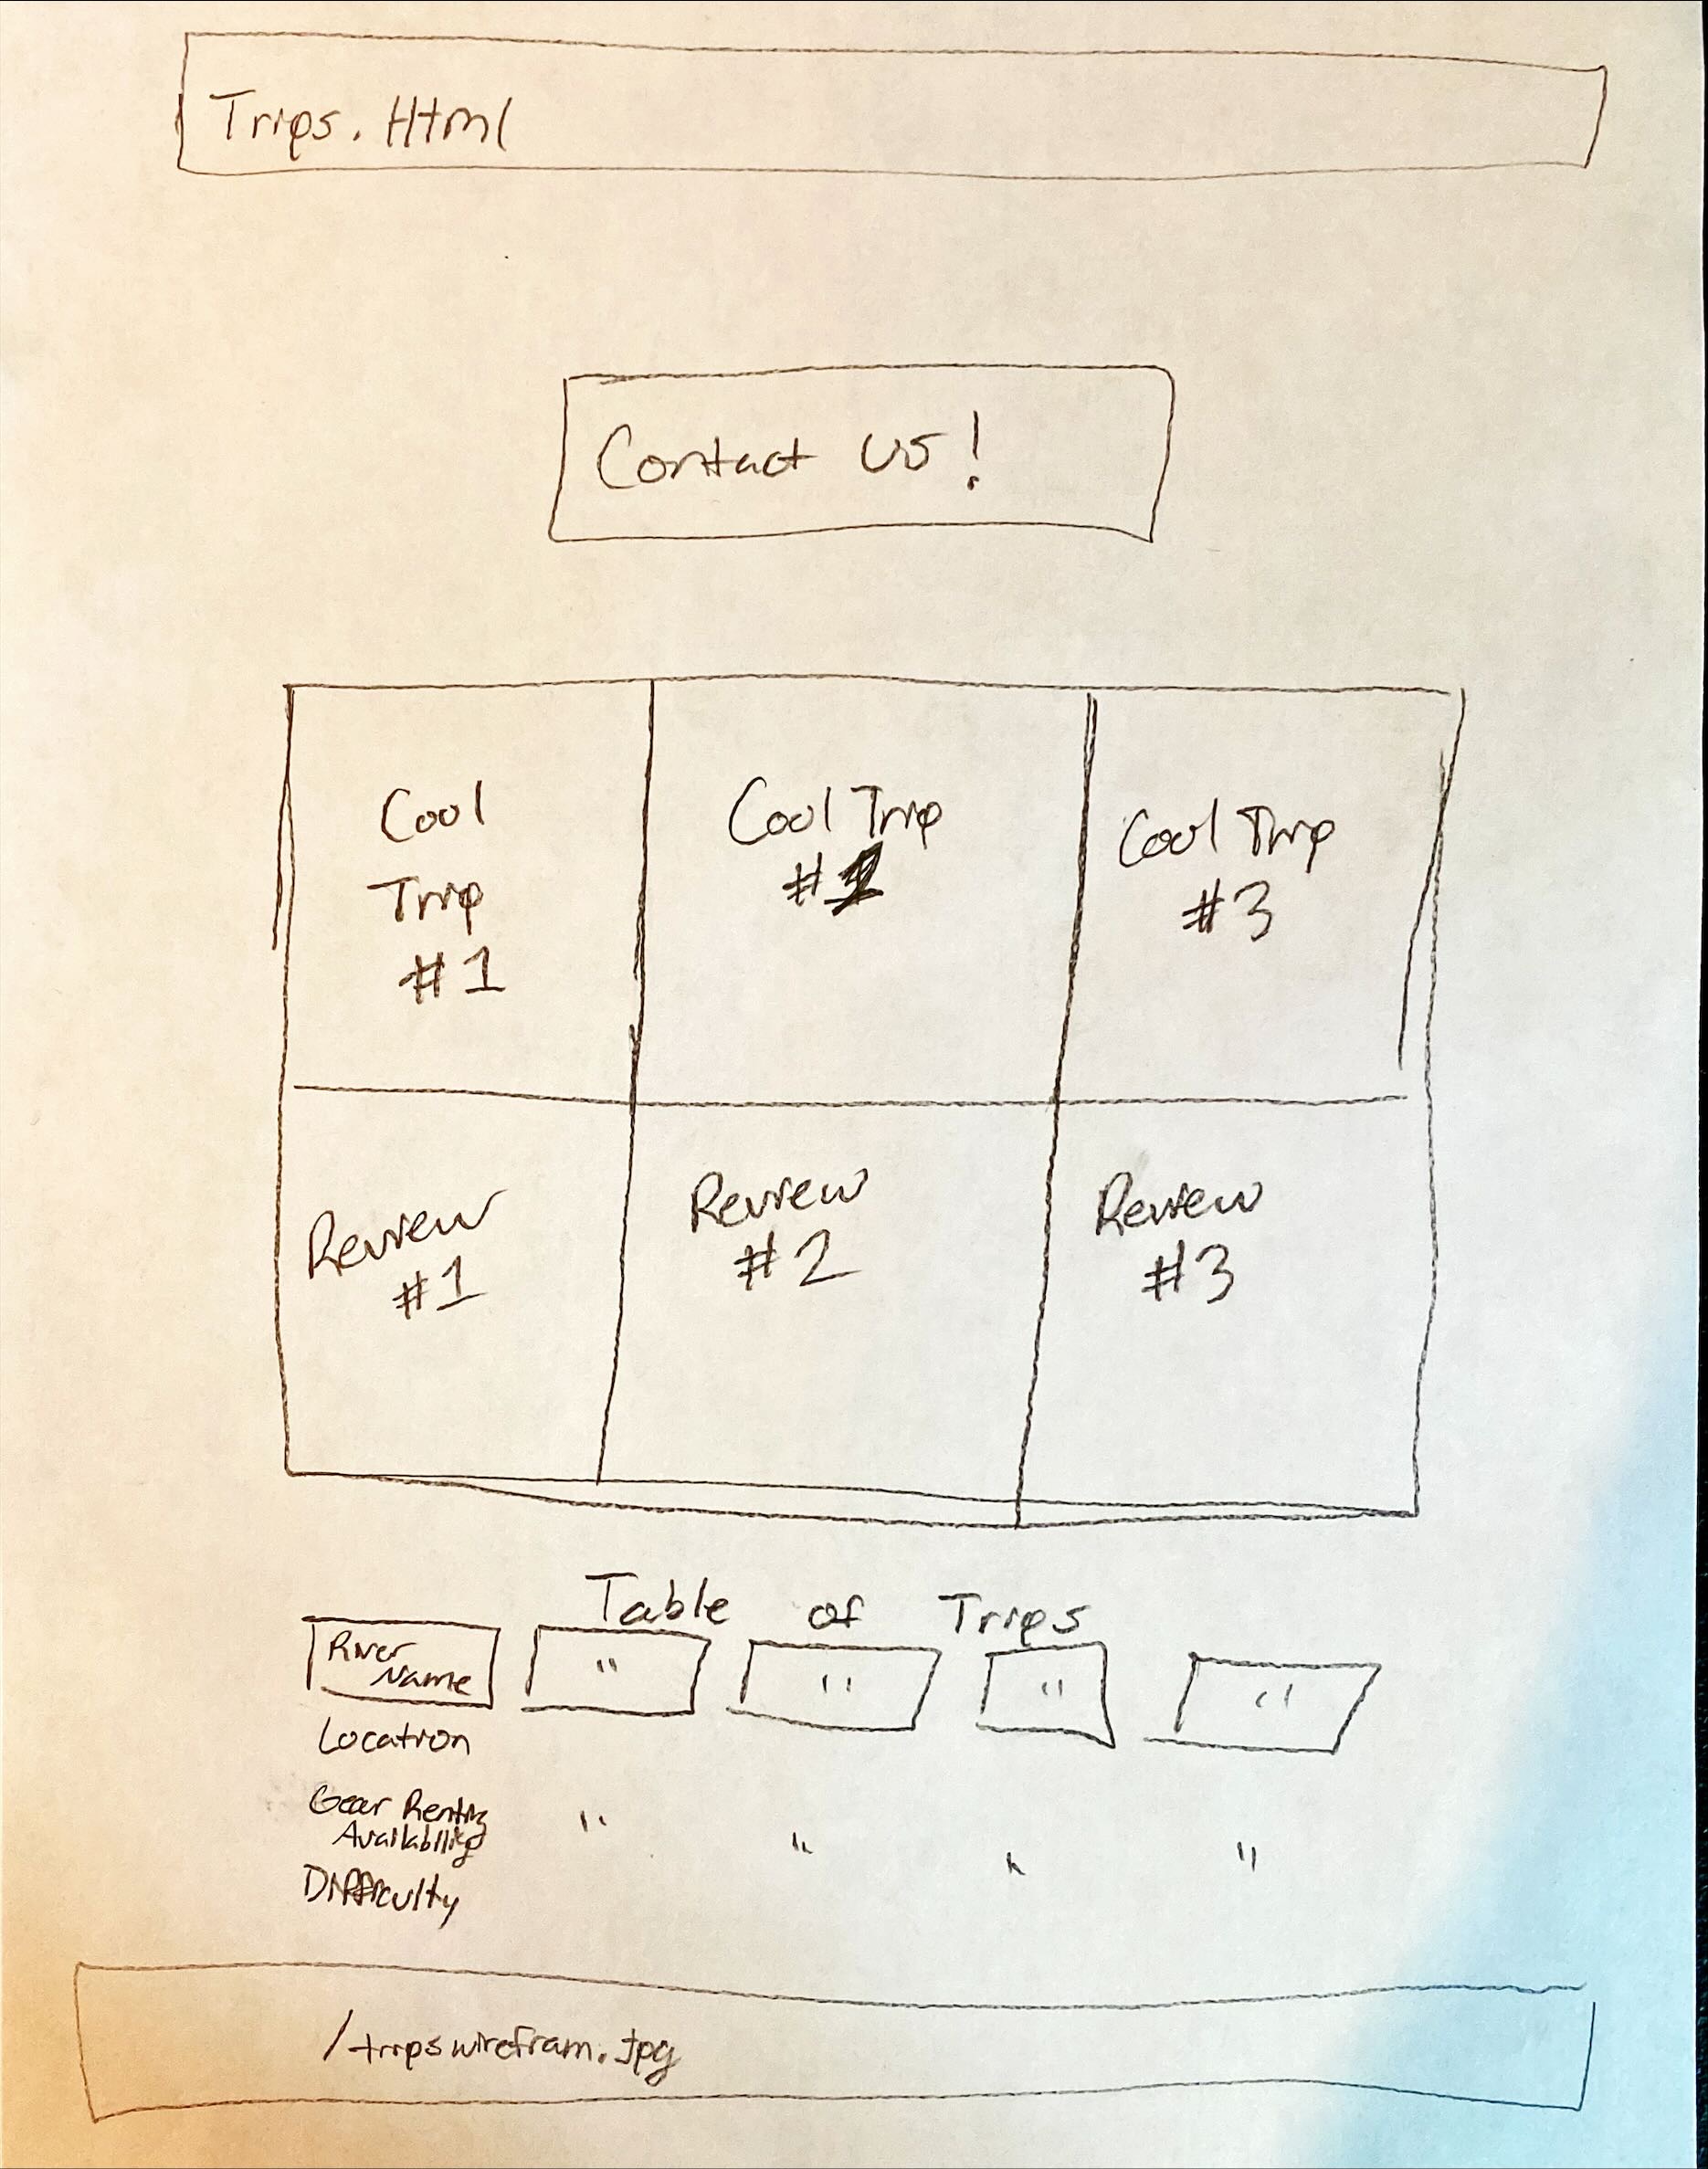 Trips. Html
Contact us!
Cool
Trip
#1
Cool Trip
#2
Cool Trip
#3
Review
#1
Review
#2
Review
#3
Table of Trips
River
Name
" " " "
Location
Gear Renting
Availability
" " " "
Difficulty
/tripswirefram.jpg